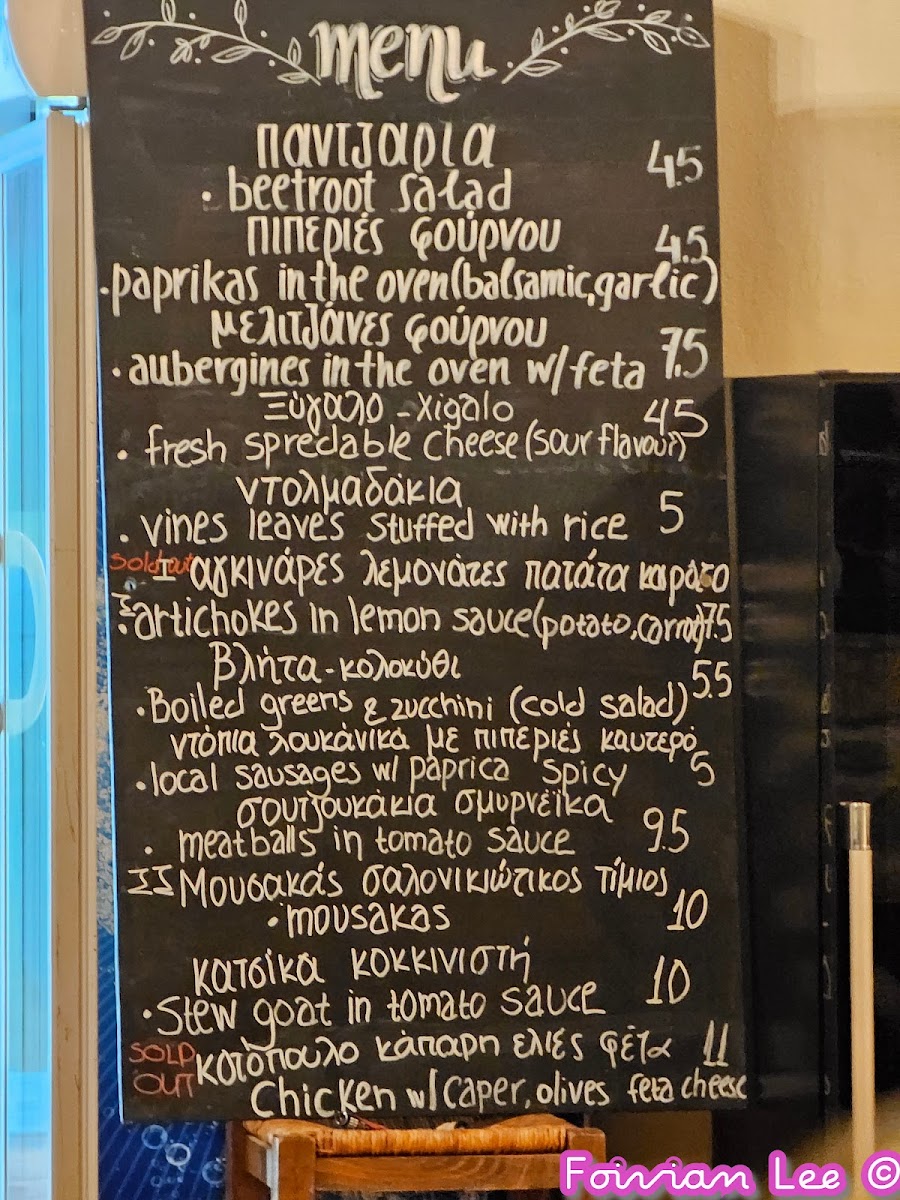 menu
παντζαρια
4.5
• beetroot salad
πιπεριές φούρνου
4.5
• paprikas in the oven (balsamic, garlic)
μελιτζάνες φούρνου
7.5
• aubergines in the oven w/ feta
Ξύγαλο - Xigalo
4.5
• fresh spredable cheese (sour flavour)
ντολμαδάκια
• vines leaves stuffed with rice 5
sold out αγκινάρες λεμονάτες πατάτα καρότο
• artichokes in lemon sauce (potato, carrot) 7.5
βλήτα - κολοκύθι
5.5
• Boiled greens & zucchini (cold salad)
ντόπια λουκάνικα με πιπεριές καυτερό
5
• local sausages w/ paprica spicy
σουτζουκάκια σμυρνέϊκα
9.5
• meatballs in tomato sauce
Μουσακάς σαλονικιώτικος τίμιος
• mousakas 10
κατσίκα κοκκινιστή
10
• Stew goat in tomato sauce
SOLD OUT κοτόπουλο κάπαρη ελιές φέτα 11
Chicken w/ caper, olives feta cheese
Foivian Lee ©